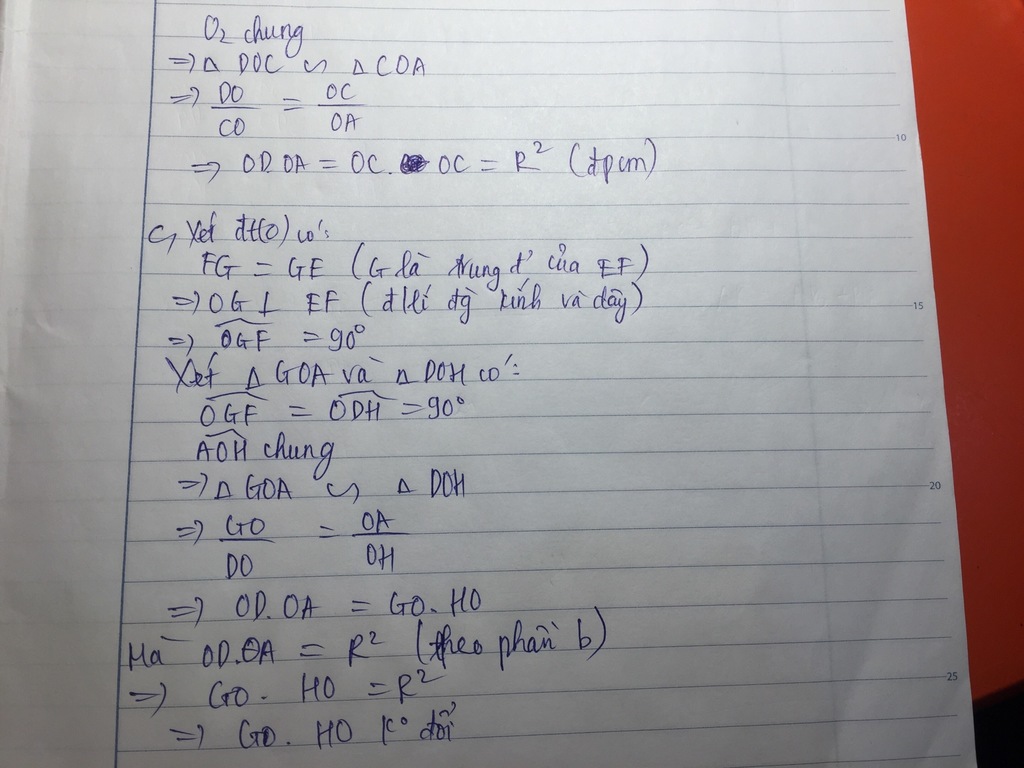 O₂ chung
=> Δ DOC ∽ Δ COA
=> DO/CO = OC/OA
=> OD.OA = OC. OC = R² (đpcm)
10
c, Xét đt(O) có:
FG = GE (G là trung đ' của EF)
=> OG ⊥ EF (đ lí đg kính và dây)
15
=> OGF = 90°
Xét Δ GOA và Δ DOH có:
OGF = ODH = 90°
AOH chung
=> Δ GOA ∽ Δ DOH
20
=> GO/DO = OA/OH
=> OD.OA = GO.HO
Mà OD.OA = R² (theo phần b)
25
=> GO. HO = R²
=> GO. HO k° đổi